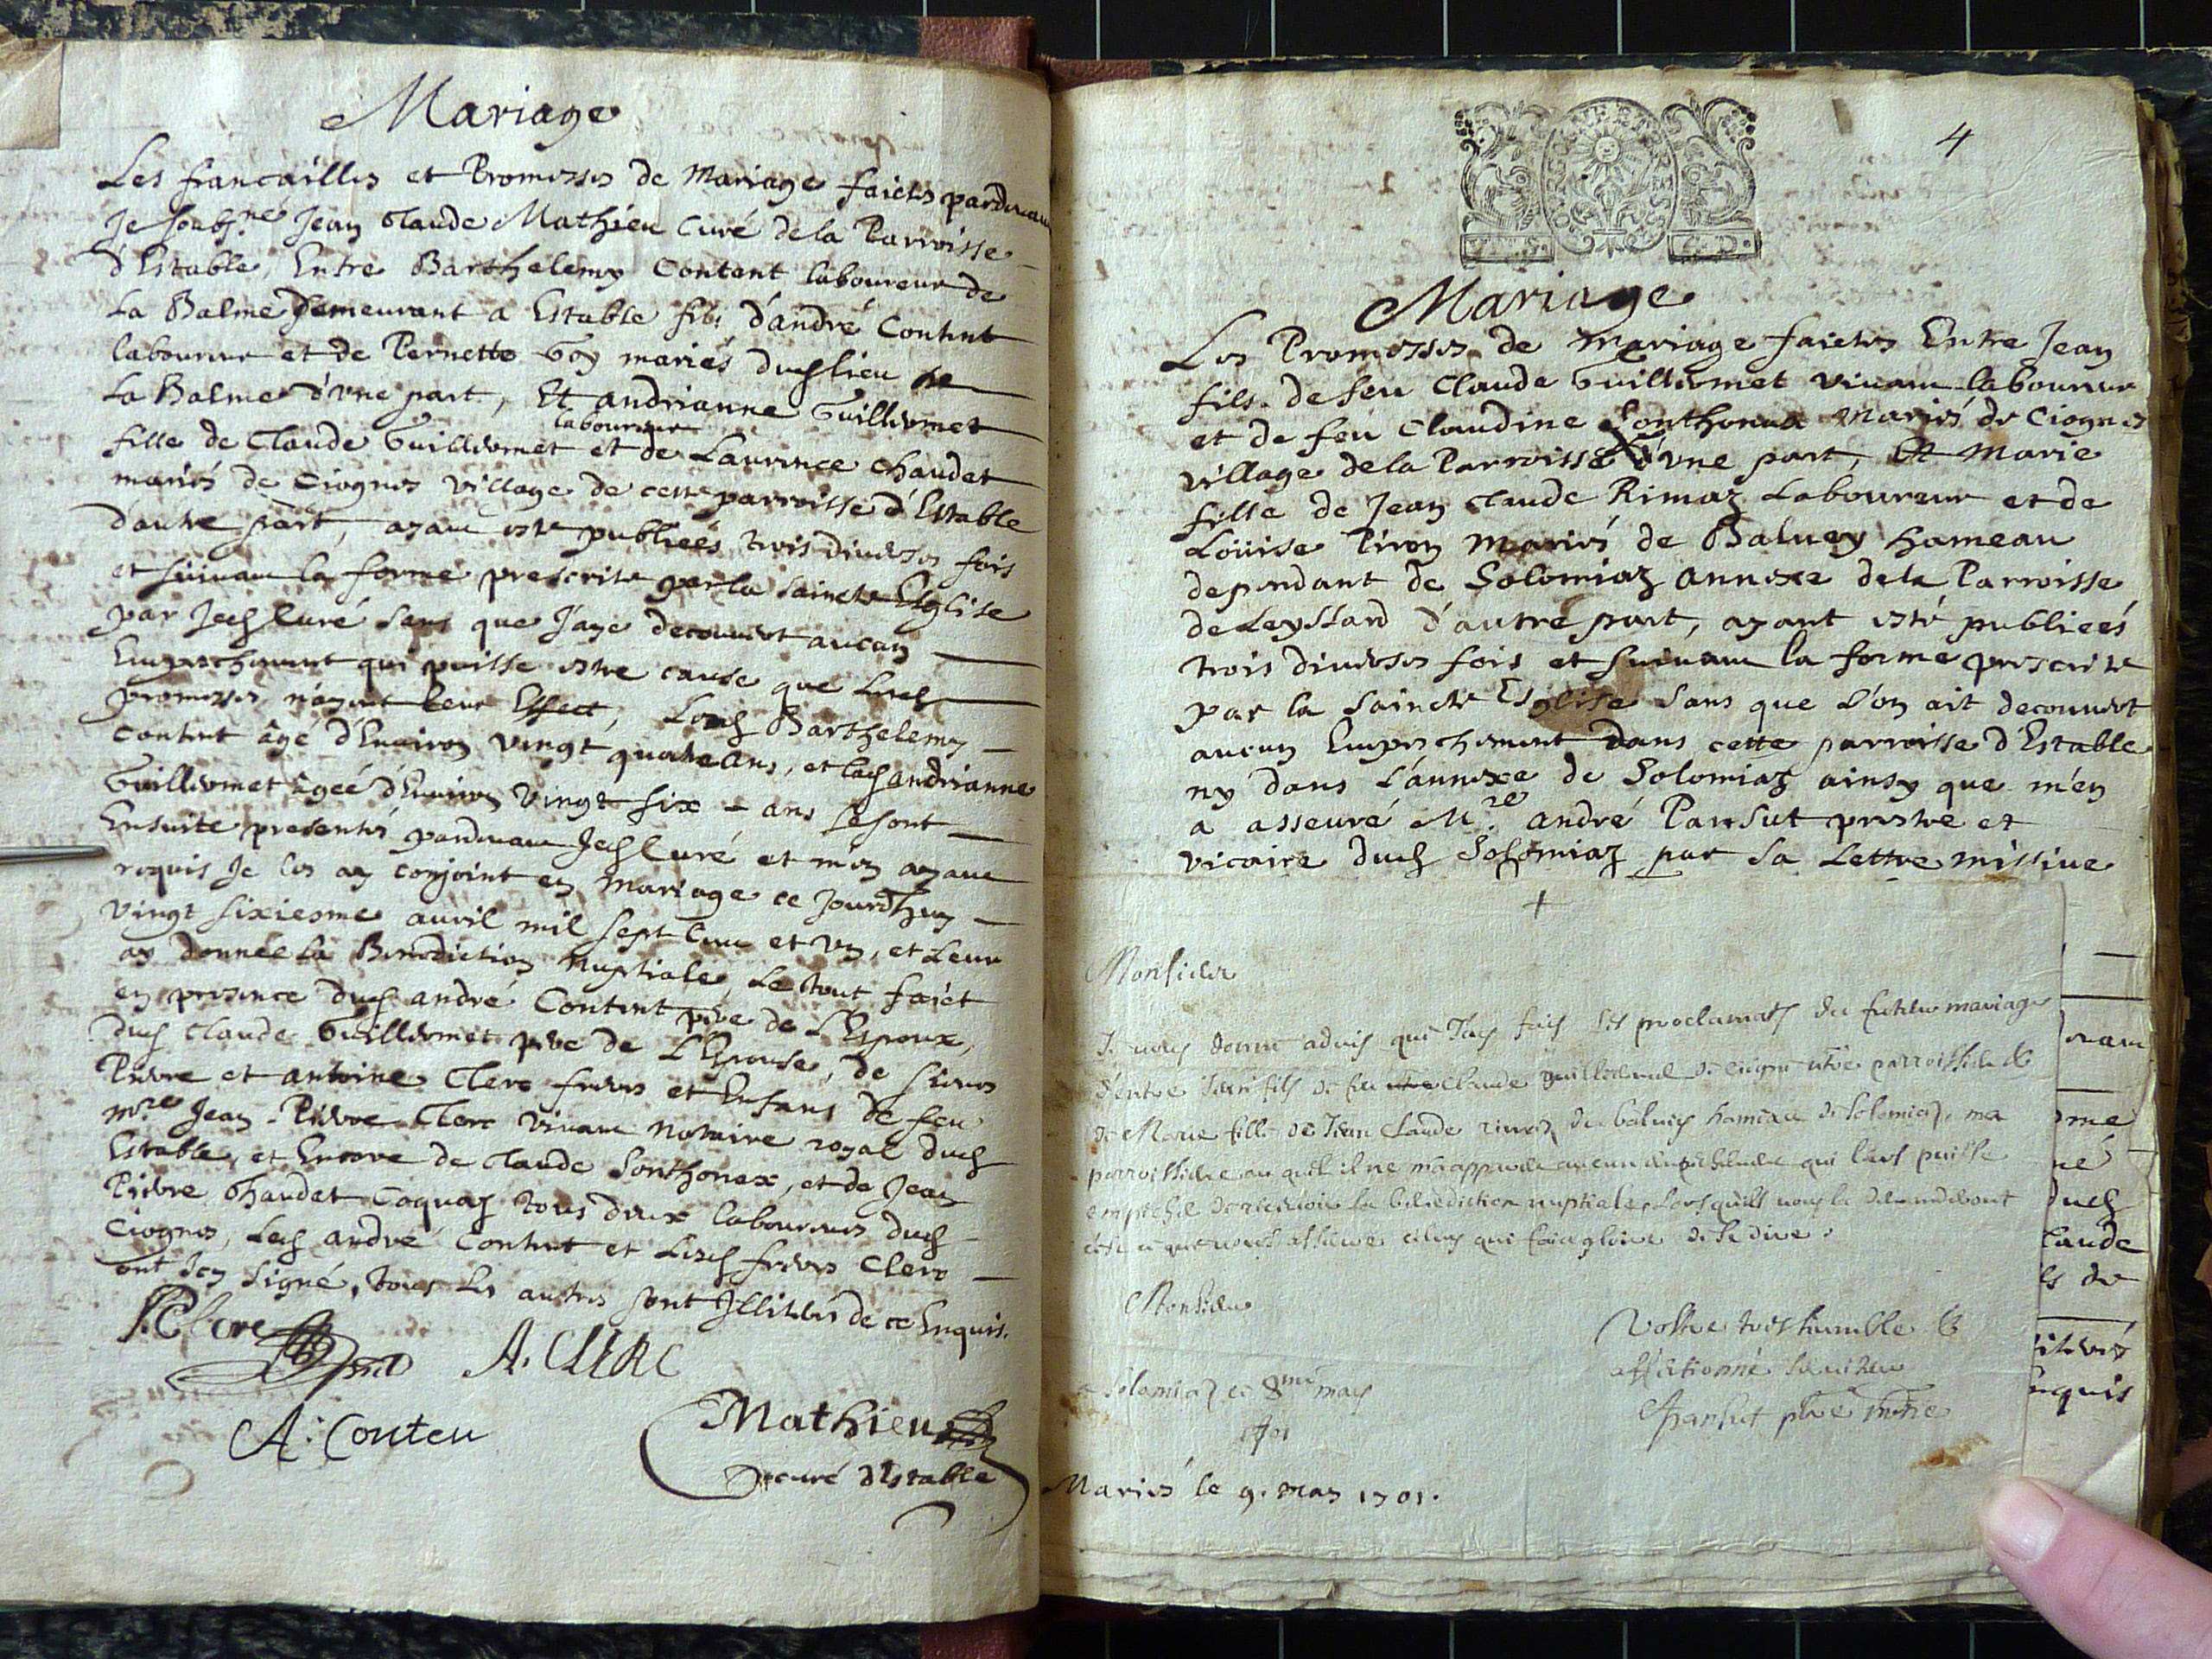 Mariage
Les fiancailles et Promesses de Mariage faictes pardeuant
Je soubs.né Jean Claude Mathieu Curé de la Parroisse
d'Estable, Entre Barthelemy Content laboureur de
La Balme Demeurant a Estable fils d'andré Content
laboureur et de Pernette Goy mariés dud lieu de
La Balme d'vne part, Et andrianne Guillermet
fille de Claude Guillermet laboureur et de Laurence Chaudet
mariés de Ciognes village de cette parroisse d'Estable
d'autre part, ayant esté publiées trois diuerses fois
et suiuant la forme prescrite par la Saincte Esglise
par Jed Curé sans que J'aye decouuert aucun
Empeschement qui puisse estre cause que lesd
promesses n'ayent leur Effect, Led Barthelemy
Content âgé d'Enuiron Vingt quatre ans, et lad andrianne
Guillermet âgée d'Enuiron Vingt six ans se sont
Ensuite presentés pardeuant Jed Curé et m'en ayant
requis Je les ay conjoint en Mariage ce Jourd'huy
Vingt sixiesme auril mil sept Cent et vn, et Leur
ay donnée la Benediction Nuptiale, Le tout faict
en presence dud andré Content pere de L'Espoux,
dud Claude Guillermet pere de L'Espouse, de sieurs
Pierre et antoine Clerc freres et Enfans de feu
Mre Jean-Pierre Clerc viuant Notaire royal dud
Estable, et Encore de Claude Sonthonax, et de Jean
Pierre Chaudet Coquaz tous deux laboureurs dud
Ciognes, Led andré Content et Lesd freres Clerc
ont Icy signé, tous les autres sont Jlliterés de ce Enquis.
P. Clerc
A. CLERC
A: Conten
Mathieu
curé d'Estable
4
Mariage
Les Promesses de Mariage faictes Entre Jean
fils de feu Claude Guillermet viuant laboureur
et de feu Claudine Sonthonax Mariés de Ciognes
village de la Parroisse d'vne part, Et Marie
fille de Jean Claude Rimaz Laboureur et de
Loüise Piron Mariés de Baluey hameau
dependant de Solomiaz annexe de la Parroisse
de Leyssard d'autre part, ayant esté publiées
trois diuerses fois et suiuant la forme prescrite
par la Saincte Esglise sans que l'on ait decouuert
aucun Empeschement dans cette parroisse d'Estable
ny dans L'annexe de Solomiaz ainsy que m'en
a asseuré M.re andré Pansut prestre et
vicaire dud Solomiaz par sa Lettre missiue
Monsieur
Je vous donne aduis que Jay fais les proclamats du futur mariage
d'entre Jean fils de feu Claude guillermet de ciogne vtre parroissien &
de Marie fille de Jean Claude rimaz de baluey hameau de solomiaz ma
parroissiene au quel il ne m'a apparu aucun empeschement qui leur puisse
empeche de receuoir la benediction nuptiale lorsquils vous la demanderont
c'est ce que vous asseure celuy qui fait gloire de se dire.
Monsieur
Vostre tres humble &
affectionné seruiteur
Apansut pbre vicre
a Solomiaz ce 8me may
1701
Mariés le 9. may 1701.